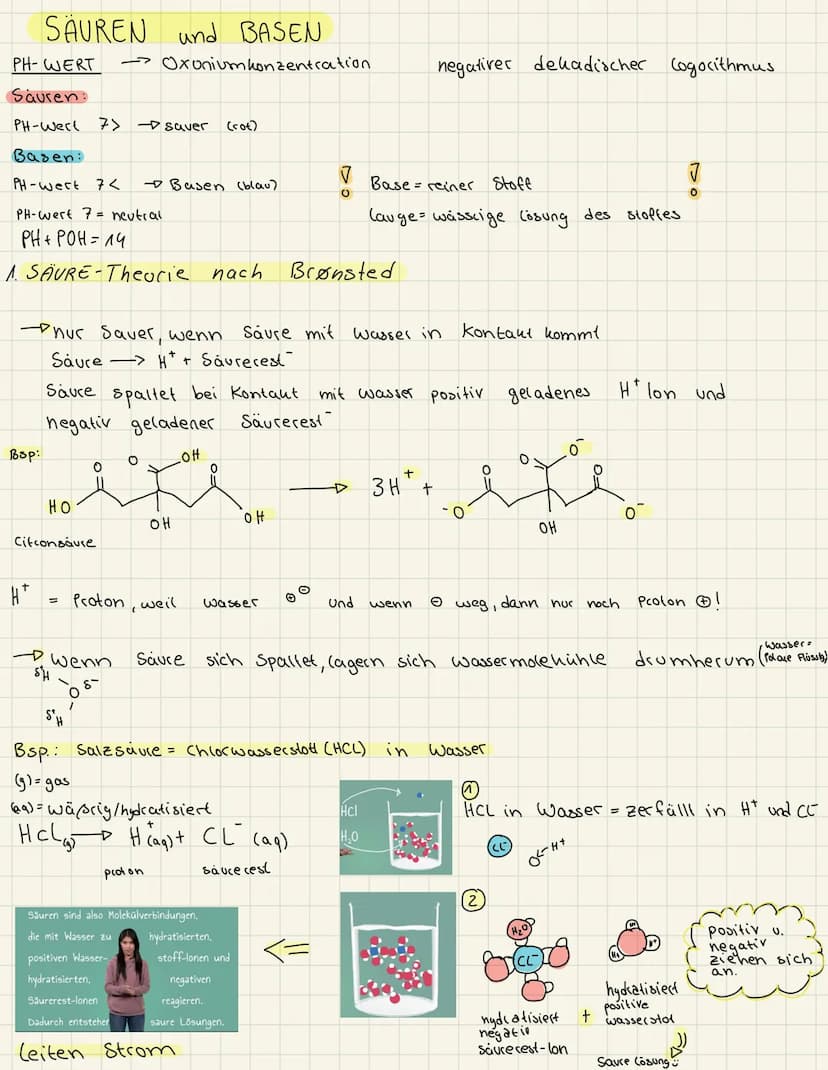 SÄUREN und BASEN
PH-WERT → Oxoniumkonzentration negativer dekadischer Logarithmus
Säuren:
PH-Wert 7> → sauer (rot)
Basen:
PH-Wert 7< → Basen (blau)
! Base = reiner Stoff !
PH-Wert 7 = neutral
Lauge = wässrige Lösung des Stoffes
PH + POH = 14
1. SÄURE-Theorie nach Brønsted
→ nur Sauer, wenn Säure mit Wasser in Kontakt kommt
Säure → H⁺ + Säurerest⁻
Säure spaltet bei Kontakt mit Wasser positiv geladenes H⁺ Ion und
negativ geladener Säurerest⁻
Bsp:
HO O O OH O OH OH → 3H⁺ + ⁻O O O O⁻ O O⁻ OH
Citronsäure
H⁺ = Proton, weil Wasser ⊕⊖ und wenn ⊖ weg, dann nur noch Proton ⊕!
→ Wenn Säure sich spaltet, lagern sich Wassermolekühle drumherum (Wasser = Polare Flüssig)
δ⁺H O δ⁻
δ⁺H
Bsp.: Salzsäure = Chlorwasserstoff (HCL) in Wasser
(g) = gas
(aq) = wäßrig/hydratisiert
HCL(g) → H⁺(aq) + CL⁻(aq)
proton säurerest
HCl
H₂O
①
HCL in Wasser = zerfällt in H⁺ und CL⁻
CL⁻ O H⁺
Säuren sind also Molekülverbindungen,
die mit Wasser zu hydratisierten,
positiven Wasser- stoff-Ionen und
hydratisierten, negativen
Säurerest-Ionen reagieren.
Dadurch entstehen saure Lösungen.
leiten Strom
②
H₂O
CL⁻
H⁺ H⁺ H⁺
positiv u.
negativ
ziehen sich
an.
hydratisiert
negativ
säurerest-Ion
+
hydratisiert
positive
wasserstof
Saure Lösung